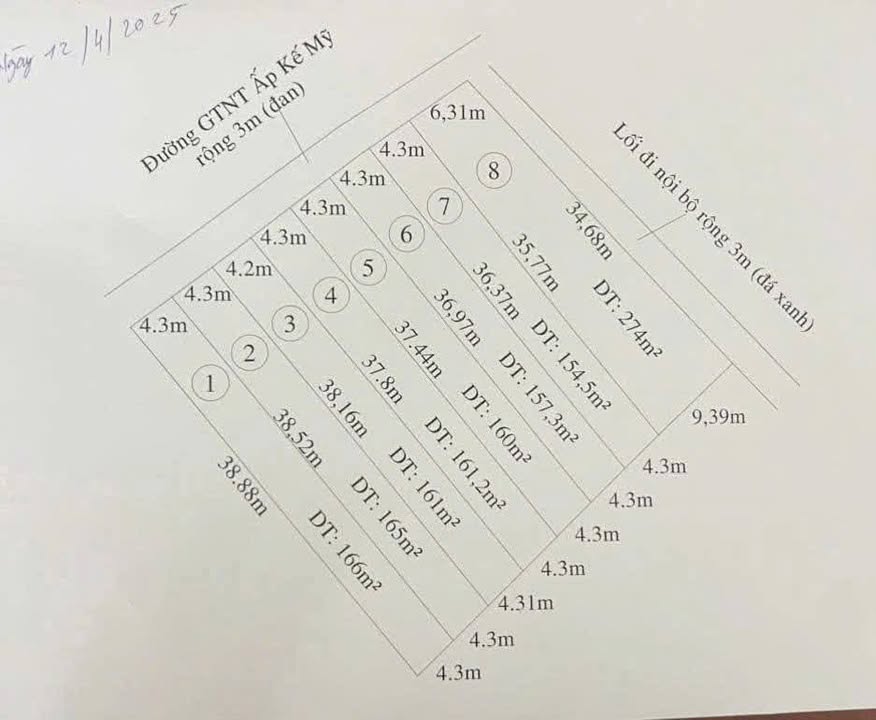 Ngày 12/4/2025
Đường GTNT Ấp Kế Mỹ
rộng 3m (đan)
Lối đi nội bộ rộng 3m (đá xanh)
6,31m
4.3m
4.3m
4.3m
4.3m
4.2m
4.3m
4.3m
8
7
6
5
4
3
2
1
34,68m
DT: 274m²
35,77m
DT: 154,5m²
36,37m
DT: 157,3m²
36,97m
DT: 160m²
37.44m
DT: 161,2m²
37.8m
DT: 161m²
38,16m
DT: 165m²
38,52m
DT: 166m²
38.88m
9,39m
4.3m
4.3m
4.3m
4.3m
4.31m
4.3m
4.3m